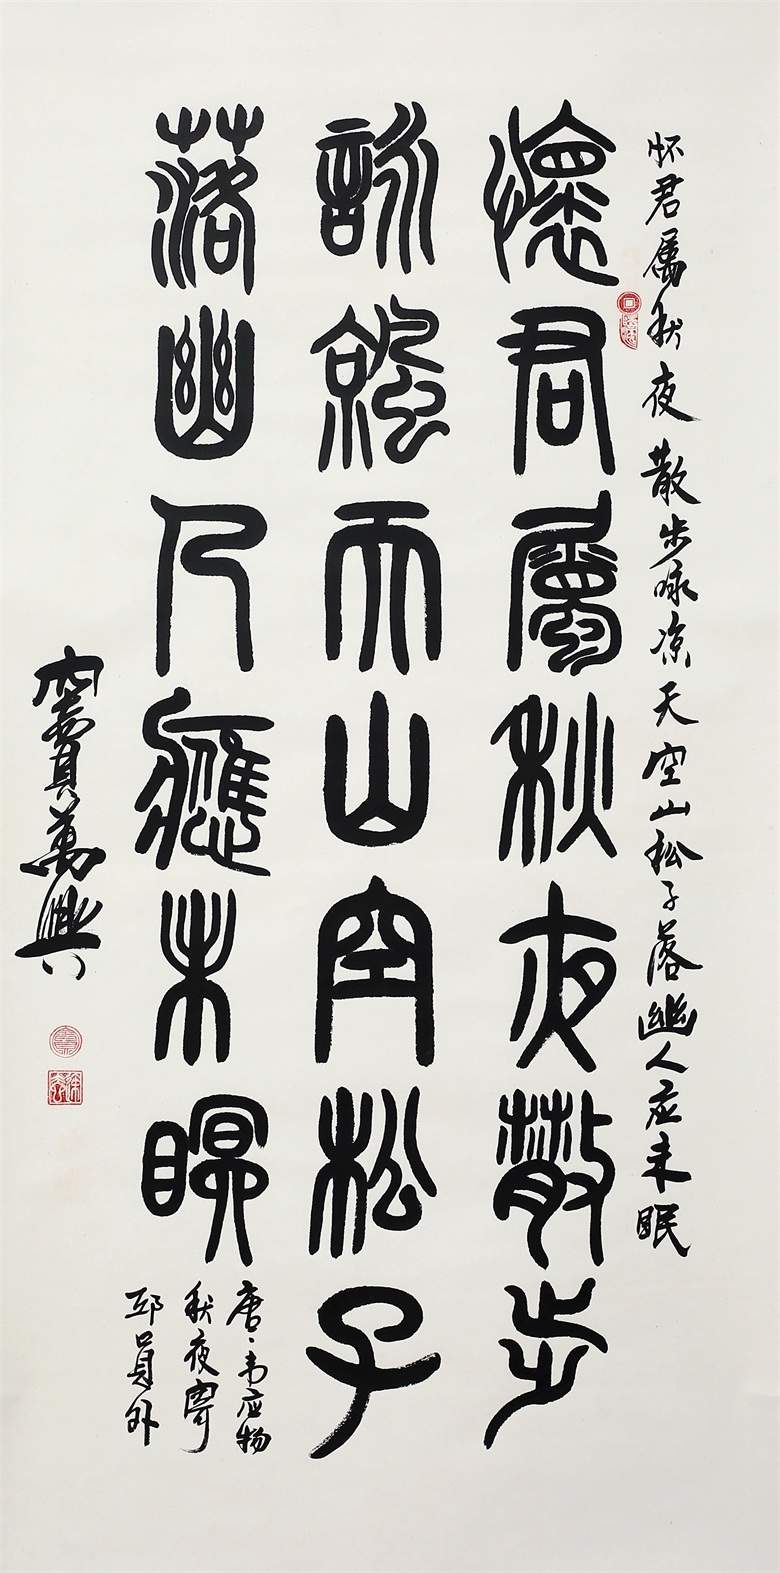 怀君属秋夜散步咏凉天空山松子落幽人应未眠
懷君屬秋夜散步
詠涼天山空松子
落幽人應未瞑
唐、韦应物
秋夜寄
邱員外
竇萬興